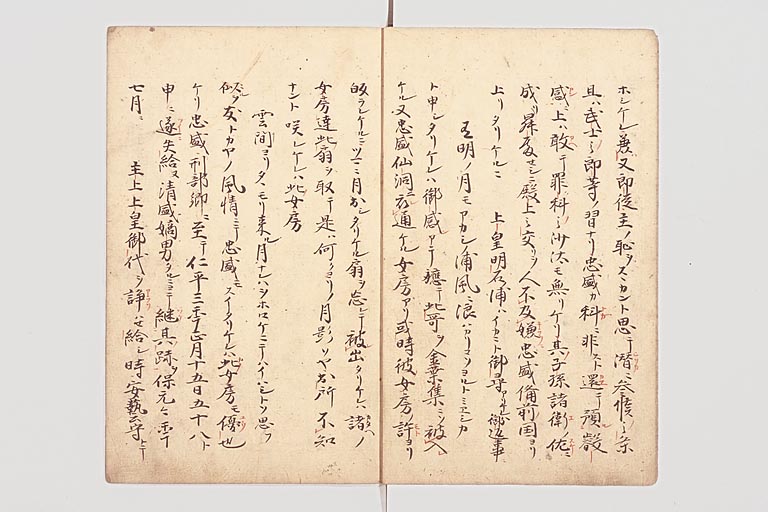 ホシケレ兼又郎従主ノ恥ヲスヽカント思テ潜ニ参候之条
且ハ武士之郎等ノ習ナリ忠盛カ科ニ非ストテ還テ預叡
感ニ上ハ敢テ罪科ノ沙汰モ無リケリ其子孫諸衛ノ佐ニ
成リ昇殿セシニ殿上ノ交リヲ人不及嫌忠盛備前国ヨリ
上リタリケルニ 上皇明石浦ハイカニト御尋アリ御返事ニ
五明ノ月モアカシノ浦風ニ浪ハカリコソヨルトミエシカ
ト申シタリケレハ御感アテ軈テ此哥ヲ金葉集ニソ被入
ケル又忠盛仙洞ニ云通ケル女房アリ或時彼女房ノ許ヨリ
皈ラレケルニツマニ月出シタリケル扇ヲ忘レテ被出タリケレハ諸ノ
女房達此扇ヲ取テ是ハ何クヨリノ月影ソヤ出所不知
ナント咲レケレハ此女房
雲間ヨリタヽモリ来ル月ナレハヲホロケニテハイハシトソ思フ
似タルヲ友トカヤノ風情ニテ忠盛モスイタリケレハ此女房モ優也
ケリ忠盛刑部卿ニ至テ仁平三年正月十五日五十八ト
申ニ遂失給ヌ清盛嫡男タルニヨテ継其跡ヲ保元々年
七月ニ 主上上皇御代ヲ諍セ給シ時安藝守トテ